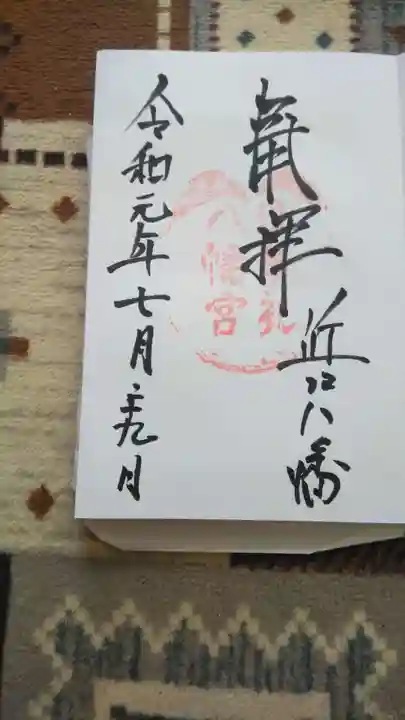 奉拝
近江八幡
令和元年七月二十九日
礼
八幡宮